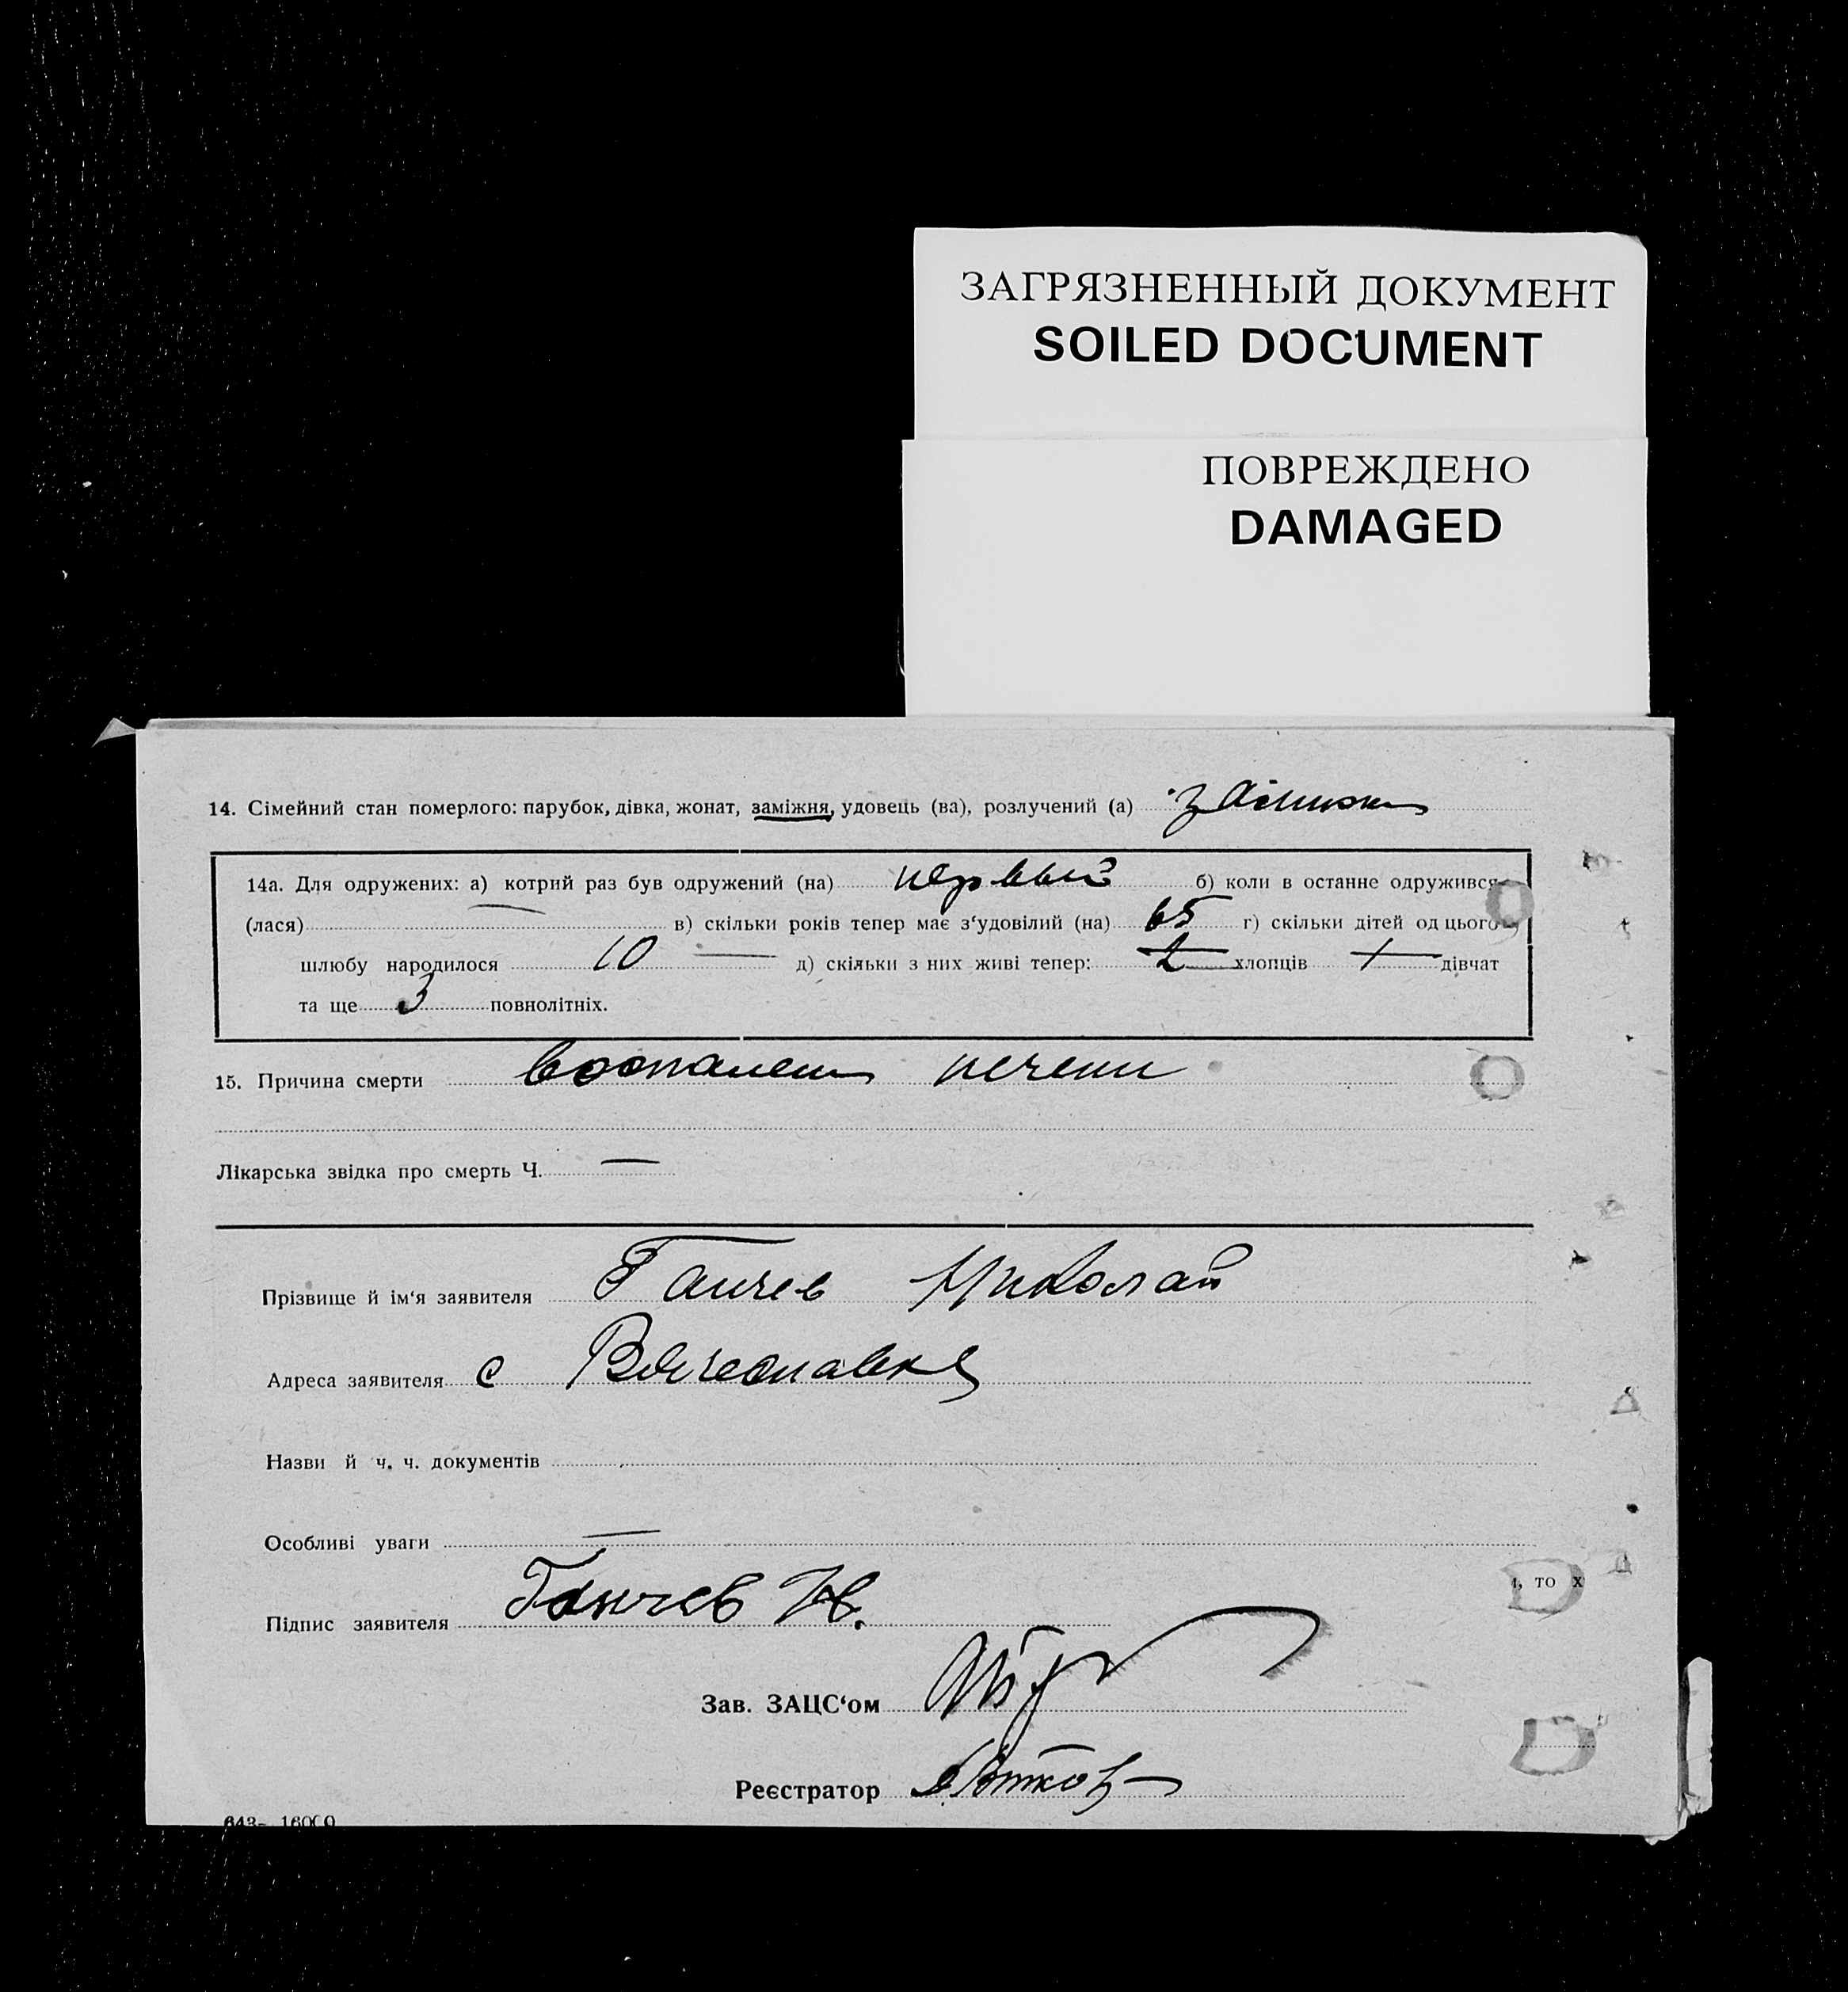 ЗАГРЯЗНЕННЫЙ ДОКУМЕНТ
SOILED DOCUMENT
ПОВРЕЖДЕНО
DAMAGED
14. Сімейний стан померлого: парубок, дівка, жонат, заміжня, удовець (ва), розлучений (а) заміжн
14а. Для одружених: а) котрий раз був одружений (на) первый б) коли в останне одружився
(лася) — в) скільки років тепер має з‘удовілий (на) 65 г) скільки дітей од цього
шлюбу народилося 10 — д) скільки з них живі тепер: хлопців дівчат
та ще 3 повнолітніх.
15. Причина смерти воспален печени
Лікарська звідка про смерть Ч. —
Прізвище й ім‘я заявителя Ганчев Николай
Адреса заявителя с Вячеславка
Назви й ч. ч. документів
Особливі уваги —
, то х
Підпис заявителя Ганчев Н.
Зав. ЗАЦС‘ом
Реєстратор
643– 16000